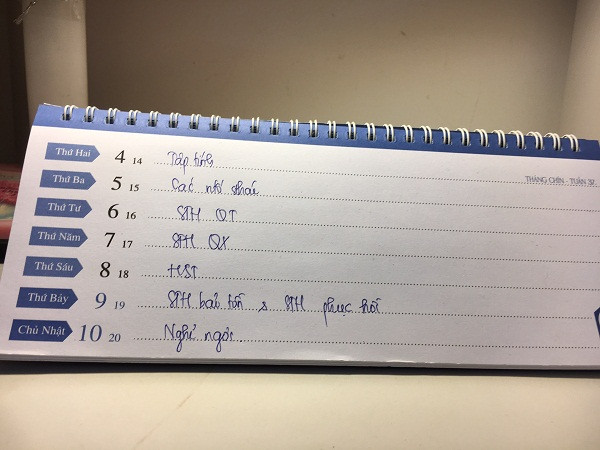 THÁNG CHÍN - TUẦN 37
Thứ Hai 4 14 Tập tính
Thứ Ba 5 15 Các nhớ
Thứ Tư 6 16 STH QT
Thứ Năm 7 17 STH QX
Thứ Sáu 8 18 HST
Thứ Bảy 9 19 STH bảo tồn & STH phục hồi
Chủ Nhật 10 20 Nghỉ ngơi.